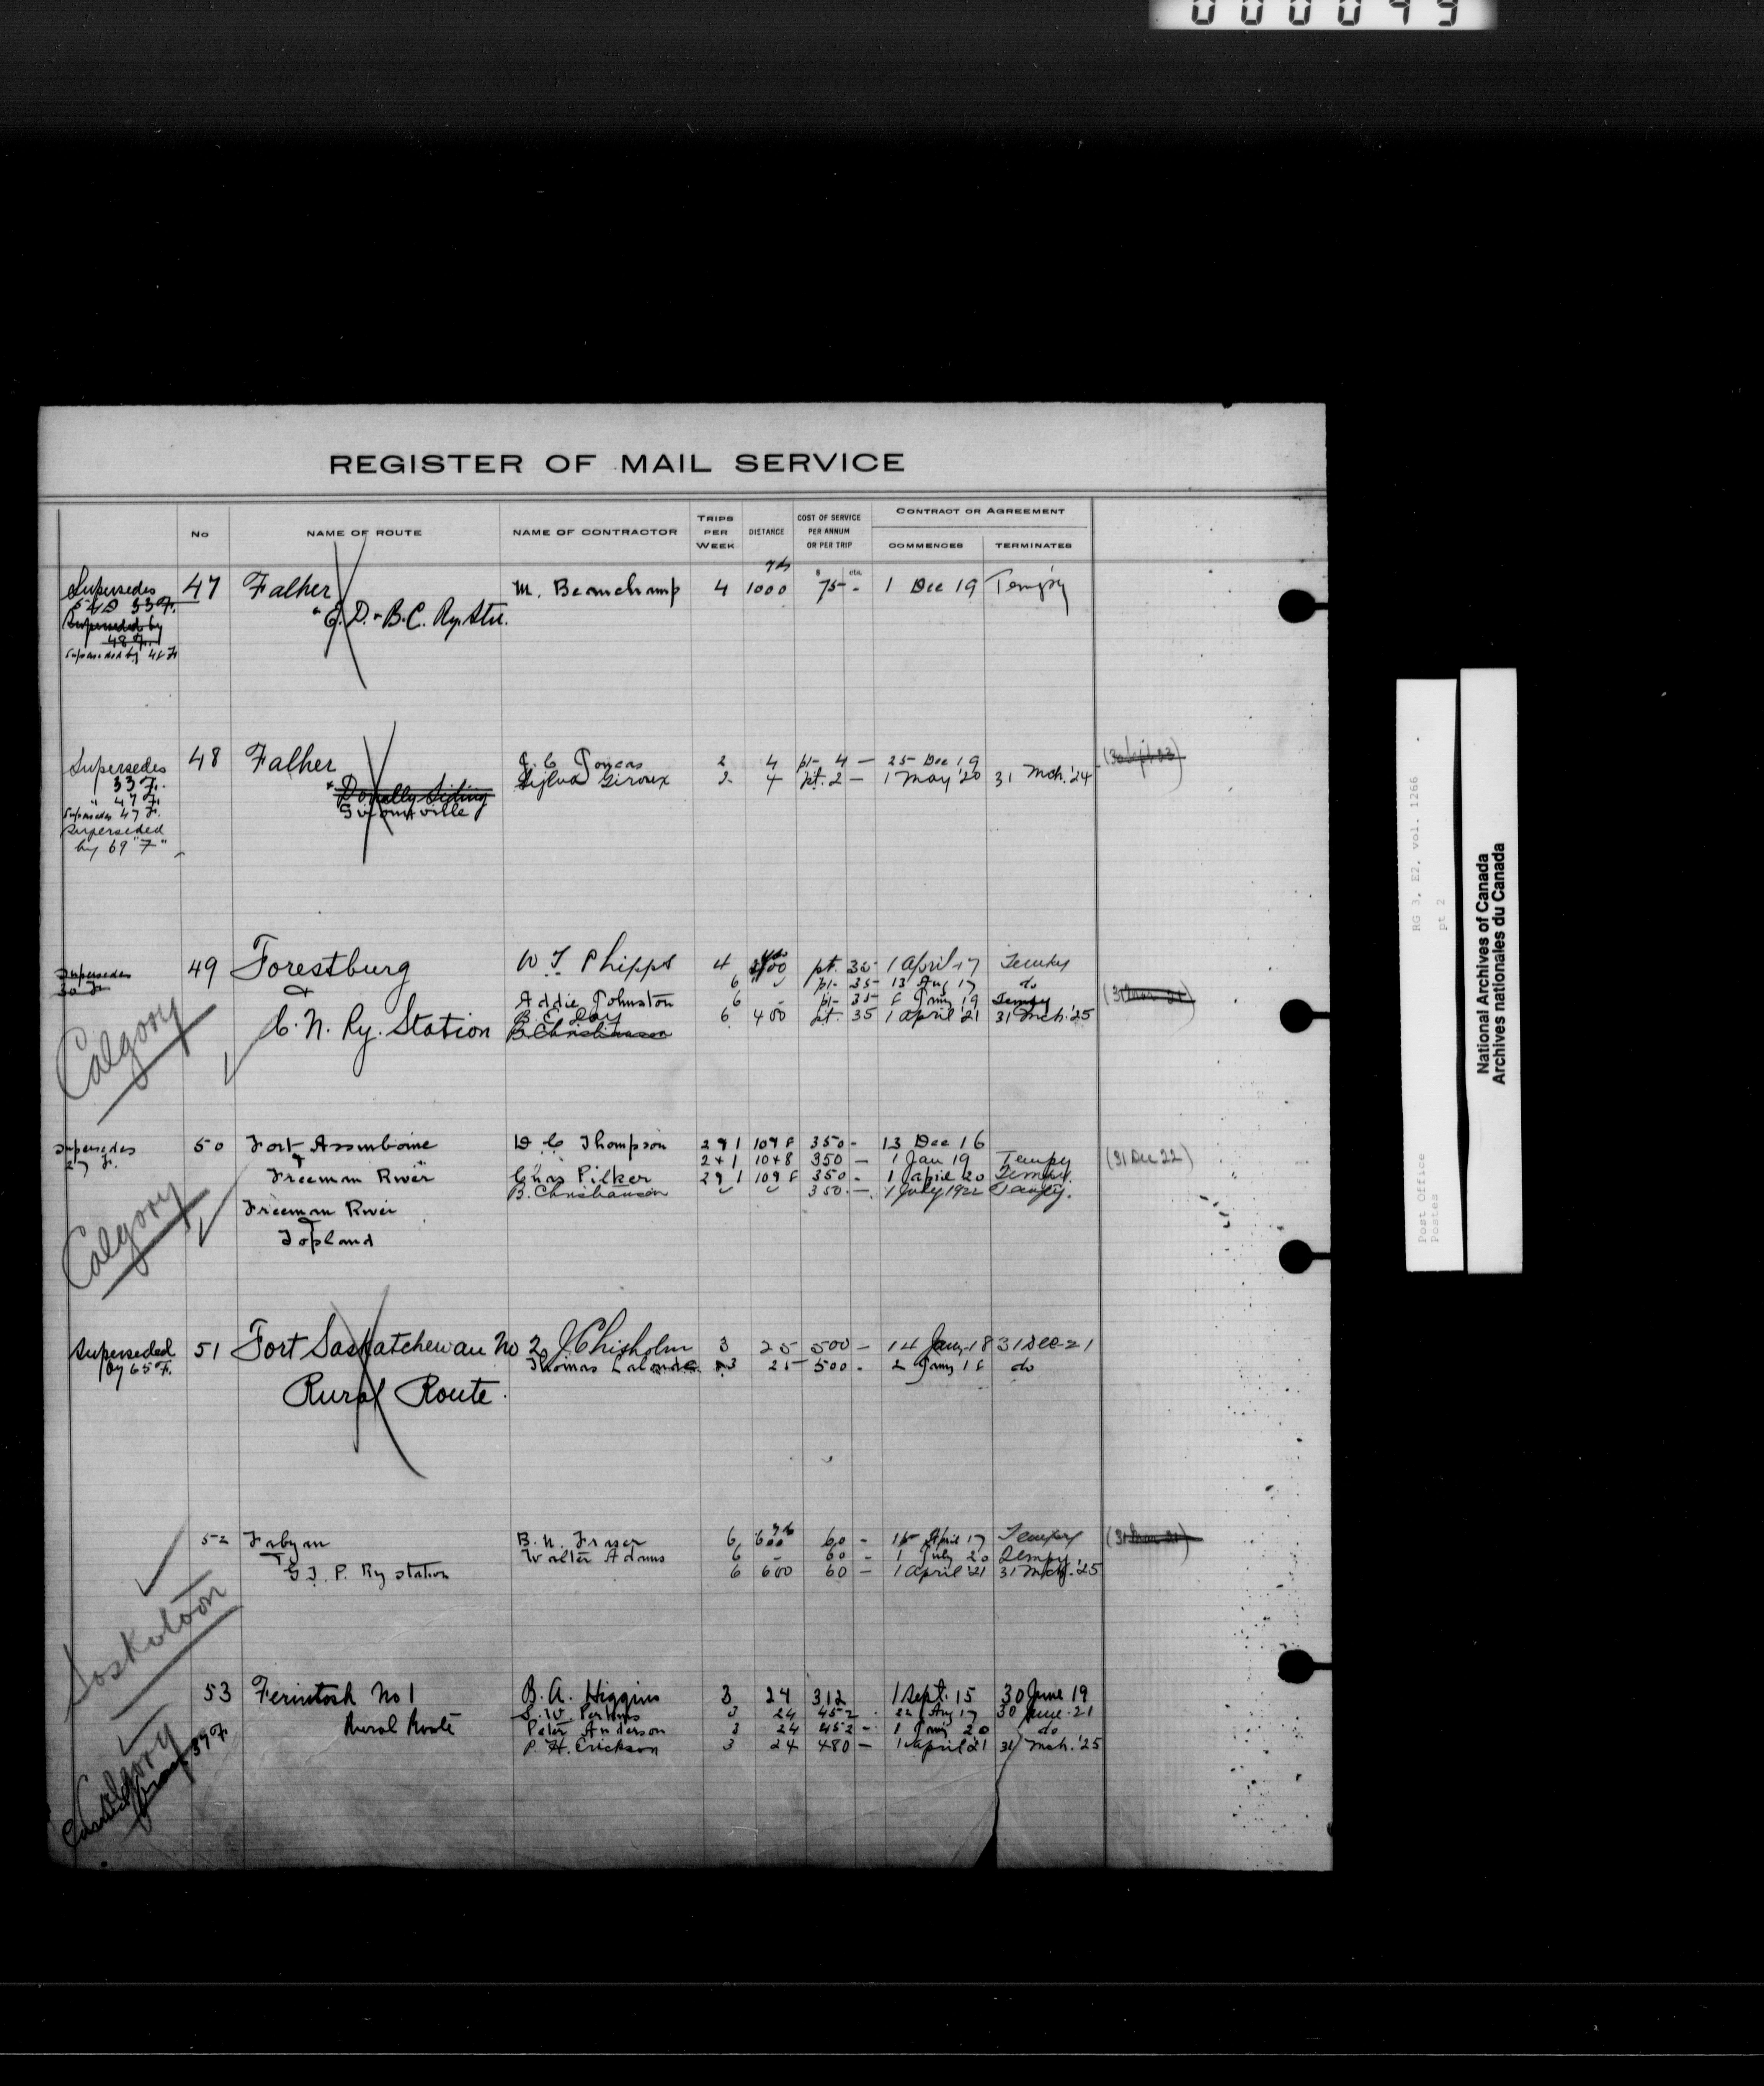 000099
REGISTER OF MAIL SERVICE
No
NAME OF ROUTE
NAME OF CONTRACTOR
TRIPS PER WEEK
DISTANCE
COST OF SERVICE PER ANNUM OR PER TRIP
CONTRACT OR AGREEMENT
COMMENCES
TERMINATES
$ cts.
Supersedes 47 Falher M. Beauchamp 4 1000 yds 75 - 1 Dec 19 Tempy
33 F. & E. D. & B.C. Ry. Stn.
Superseded by
48 F.
Superseded by 48 F
Supersedes 48 Falher J. C. 2 4 pt- 4 — 25 Dec 19
33 F. Sylva Giroux 2 4 pt. 2 — 1 May '20 31 Mch. '24
" 47 F. & Donally Siding
Supersedes 47 F. Girouxville
Superseded
by 69 "F"
Supersedes 49 Forestburg W T Phipps 4 pt. 35 - 1 April 17 Tempy
30 F. & 6 " pt- 35 - 13 Aug 17 do
Addie Johnston 6 - pt- 35 - 8 Jany 19 Tempy
C. N. Ry. Station B. E. Day 6 400 pt. 35 1 April '21 31 Mch. '25
B. Christianson
Calgary
Supersedes 50 Fort Assinboine D. C Thompson 2 & 1 104 & 8 350 - 13 Dec 16
27 F. & 2 + 1 10 + 8 350 — 1 Jan 19 Tempy (31 Dec 22)
Freeman River Chas Pilker 2 & 1 10 & 8 350 - 1 April 20 Tempy.
B. Christianson 350. — 1 July 1922 Tempy.
Freeman River
&
Topland
Calgary
Superseded 51 Fort Saskatchewan No 2 J. Chisholm 3 25 500 — 14 Jany 18 31 Dec 21
by 65 F. Thomas Lalonde 3 25 500 - 2 Jany 18 do
Rural Route.
52 Fabyan B. N. Fraser 6 600 yds 60 - 15 April 17 Tempy
& Walter Adams 6 - 60 - 1 July 20 Tempy
G. T. P. Ry station 6 600 60 — 1 April '21 31 Mch. '25
Saskatoon
53 Ferintosh No 1 B. A. Higgins 3 24 312 1 Sept. 15 30 June 19
Rural Route S. W. Perkins 3 24 452 - 22 Aug 17 30 June 21
Peter Anderson 3 24 452 - 1 Jany 20 do
P. H. Erickson 3 24 480 — 1 April 21 31 Mch. '25
Calgary
RG 3, E2, vol. 1266
pt 2
Post Office
Postes
National Archives of Canada
Archives nationales du Canada